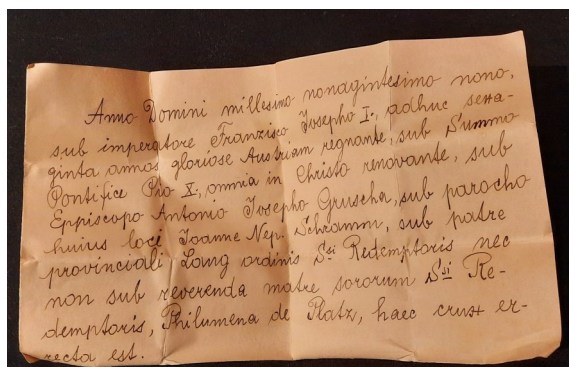 Anno Domini millesimo nonagintesimo nono,
sub imperatore Franzisco Josepho I., adhuc sexa-
ginta annos gloriose Austriam regnante, sub Summo
Pontifice Pio X., omnia in Christo renovante, sub
Eppiscopo Antonio Josepho Gruscha, sub parocho
huius loci Joanne Nep. Schramm, sub patre
provinciali Lang ordinis Ssi Redemptoris nec
non sub reverenda matre sororum Ssi Re-
demptoris, Philumena de Platz, haec crux er-
recta est.